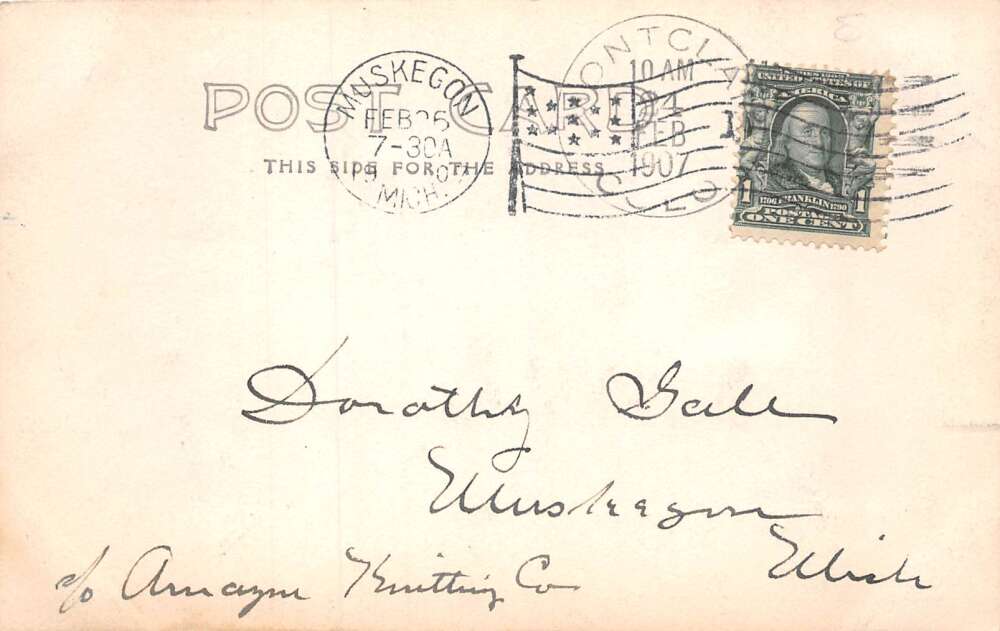 POST CARD
THIS SIDE FOR THE ADDRESS
MUSKEGON
FEB 26
7-30A
MICH.
MONTCLAIR
10 AM
24
FEB
1907
COLO.
SERIES 1902
UNITED STATES OF
AMERICA
1706 FRANKLIN 1790
1 POSTAGE 1
ONE CENT
Dorothy Gall
Muskegon
Mich
c/o Amazon Knitting Co